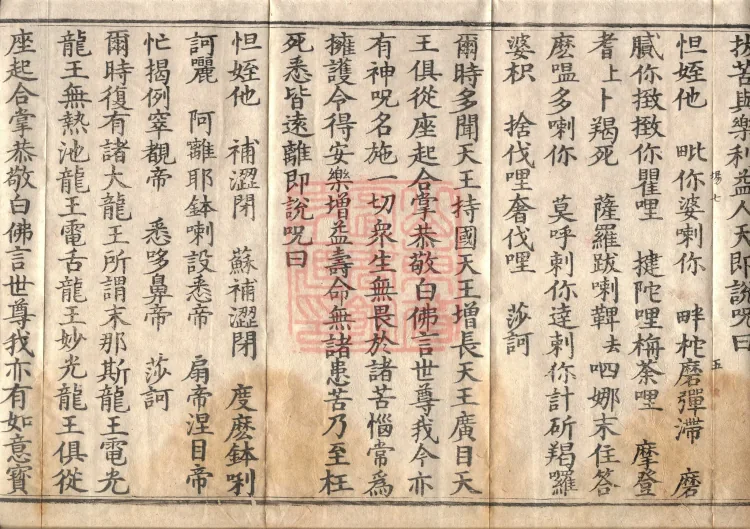 拔苦與樂利益人天即說呪曰
怛姪他 毗你婆喇你 畔柁磨彈滯 磨
膩你㨖㨖你瞿哩 揵陀哩栴荼哩 摩登
耆上卜羯死 薩羅跋喇鞞去 呬娜末住答
麽嗢多喇你 莫呼剌你達剌你計斫羯囉
婆枳 捨伐哩奢伐哩 莎訶
爾時多聞天王持國天王增長天王廣目天
王俱從座起合掌恭敬白佛言世尊我今亦
有神呪名施一切衆生無畏於諸苦惱常為
擁護令得安樂增益壽命無諸患苦乃至枉
死悉皆遠離即說呪曰
怛姪他 補澀閇 蘇補澀閇 度麽鉢唎
訶麗 阿離耶鉢喇設悉帝 扇帝涅目帝
忙揭例窣覩帝 悉哆鼻帝 莎訶
爾時復有諸大龍王所謂末那斯龍王電光
龍王無熱池龍王電舌龍王妙光龍王俱從
座起合掌恭敬白佛言世尊我亦有如意寶